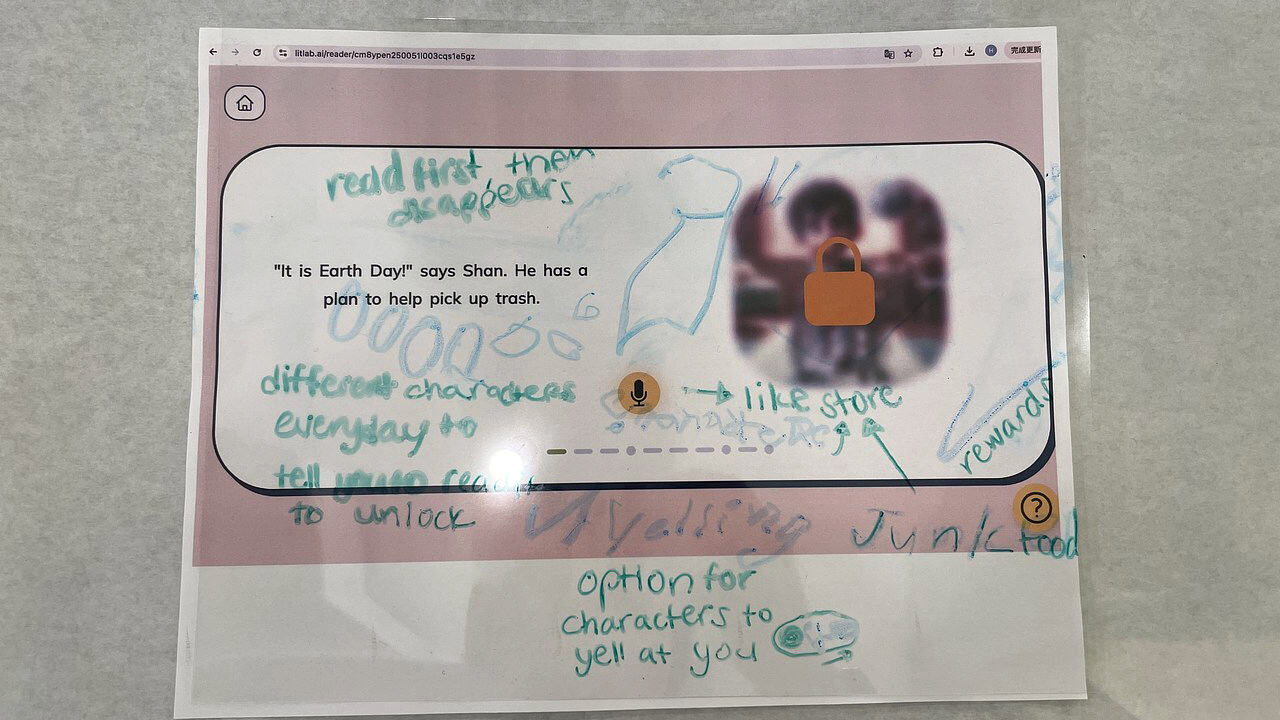 litlab.ai/reader/cm8ypen250051l003cqs1e5gz
完成更新
read first then
disappears
"It is Earth Day!" says Shan. He has a
plan to help pick up trash.
6
different characters
everyday to
tell you to read it
to unlock
like store
rewards
?
Junk food
option for
characters to
yell at you